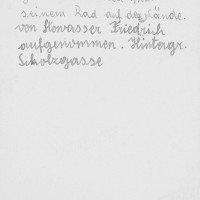 seinem Rad auf der Lände.
von Howasser Friedrich
aufgenommen. Hintergr.
Scholzgasse